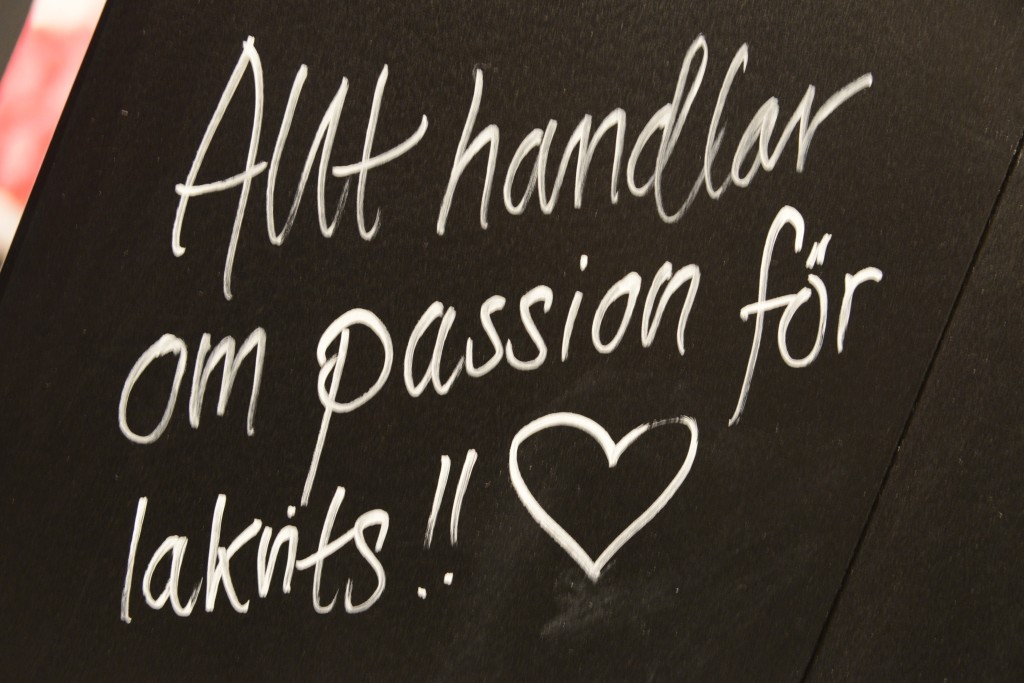 Allt handlar
om passion för
lakrits!! ♡